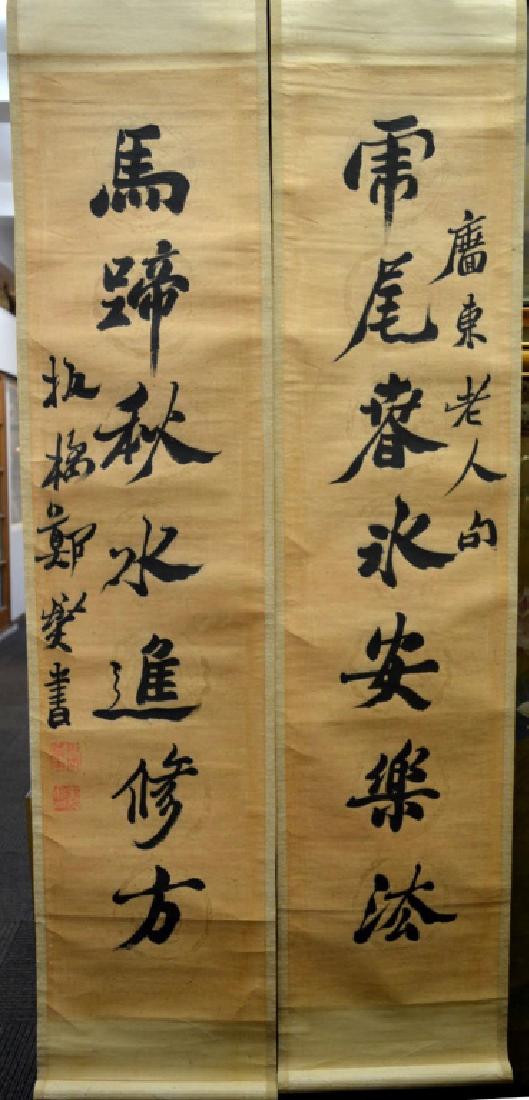 廣東老人句
虎尾春冰安樂法
馬蹄秋水進修方
板橋鄭燮書